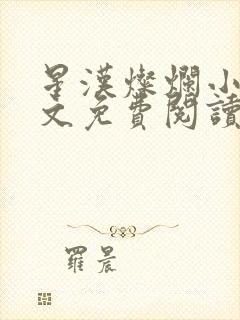 星漢燦爛小
文免費閱讀
羅晨